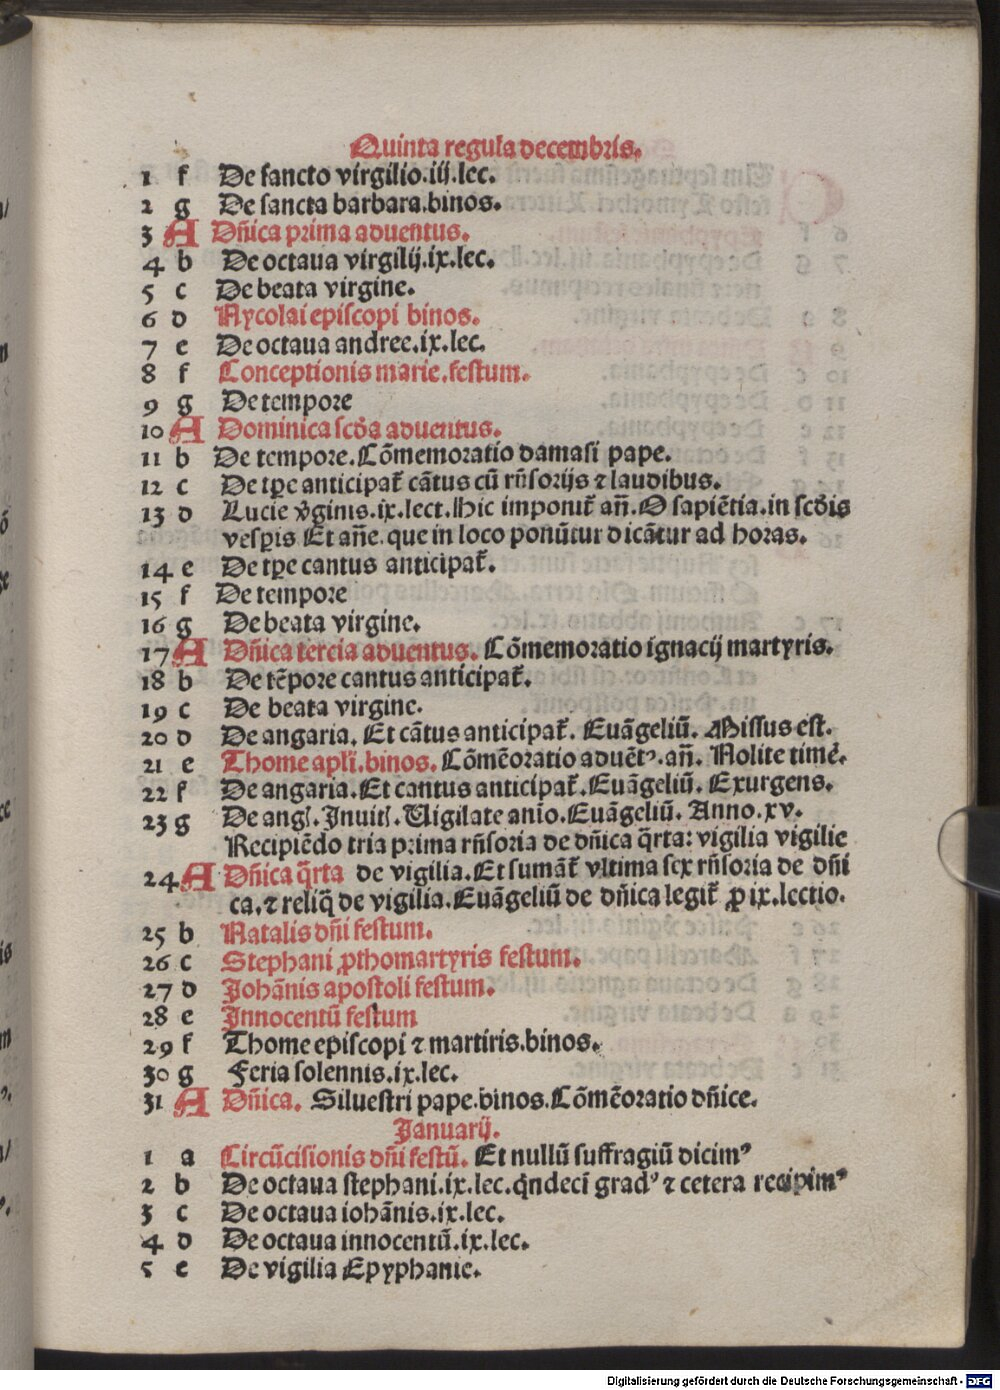 Quinta regula decembris.
1 f De sancto virgilio.iij.lec.
2 g De sancta barbara.binos.
3 A Dñica prima aduentus.
4 b De octaua virgilij.ix.lec.
5 c De beata virgine.
6 d Nycolai episcopi binos.
7 e De octaua andree.ix.lec.
8 f Conceptionis marie.festum.
9 g De tempore
10 A Dominica scďa aduentus.
11 b De tempore.Cõmemoratio damasi pape.
12 c De tꝑe anticipat̃ cãtus cũ rñsorijs ⁊ laudibus.
13 d Lucie v̓ginis.ix.lect.Hic imponit̃ añ.O sapiẽtia.in scďis
vesꝑis Et añe.que in loco ponũtur dicãtur ad horas.
14 e De tꝑe cantus anticipat̃.
15 f De tempore
16 g De beata virgine.
17 A Dñica tercia aduentus. Cõmemoratio ignacij martyris.
18 b De tẽpore cantus anticipat̃.
19 c De beata virgine.
20 d De angaria. Et cãtus anticipat̃. Euãgeliũ. Missus est.
21 e Thome apľi.binos. Cõmẽoratio aduẽtꝰ.añ. Nolite timẽ.
22 f De angaria.Et cantus anticipat̃.Euãgeliũ. Exurgens.
23 g De angľ.Inuitľ.Uigilate anío.Euãgeliũ. Anno.xv.
Recipiẽdo tria prima rñsoria de dñica q̃rta: vigilia vigilie
24 A Dñica q̃rta de vigilia.Et sumãt̃ vltima sex rñsoria de dñi
ca.⁊ reliq̃ de vigilia.Euãgeliũ de dñica legit̃ ꝓ ix.lectio.
25 b Natalis dñi festum.
26 c Stephani ꝓthomartyris festum.
27 d Johãnis apostoli festum.
28 e Innocentũ festum
29 f Thome episcopi ⁊ martiris.binos.
30 g Feria solennis.ix.lec.
31 A Dñica. Siluestri pape.binos.Cõmẽoratio dñice.
Januarij.
1 a Circũcisionis dñi festũ. Et nullũ suffragiũ dicimꝰ
2 b De octaua stephani.ix.lec.q̃ndecĩ gradꝰ ⁊ cetera recipimꝰ
3 c De octaua iohãnis.ix.lec.
4 d De octaua innocentũ.ix.lec.
5 e De vigilia Epyphanie.
Digitalisierung gefördert durch die Deutsche Forschungsgemeinschaft - DFG